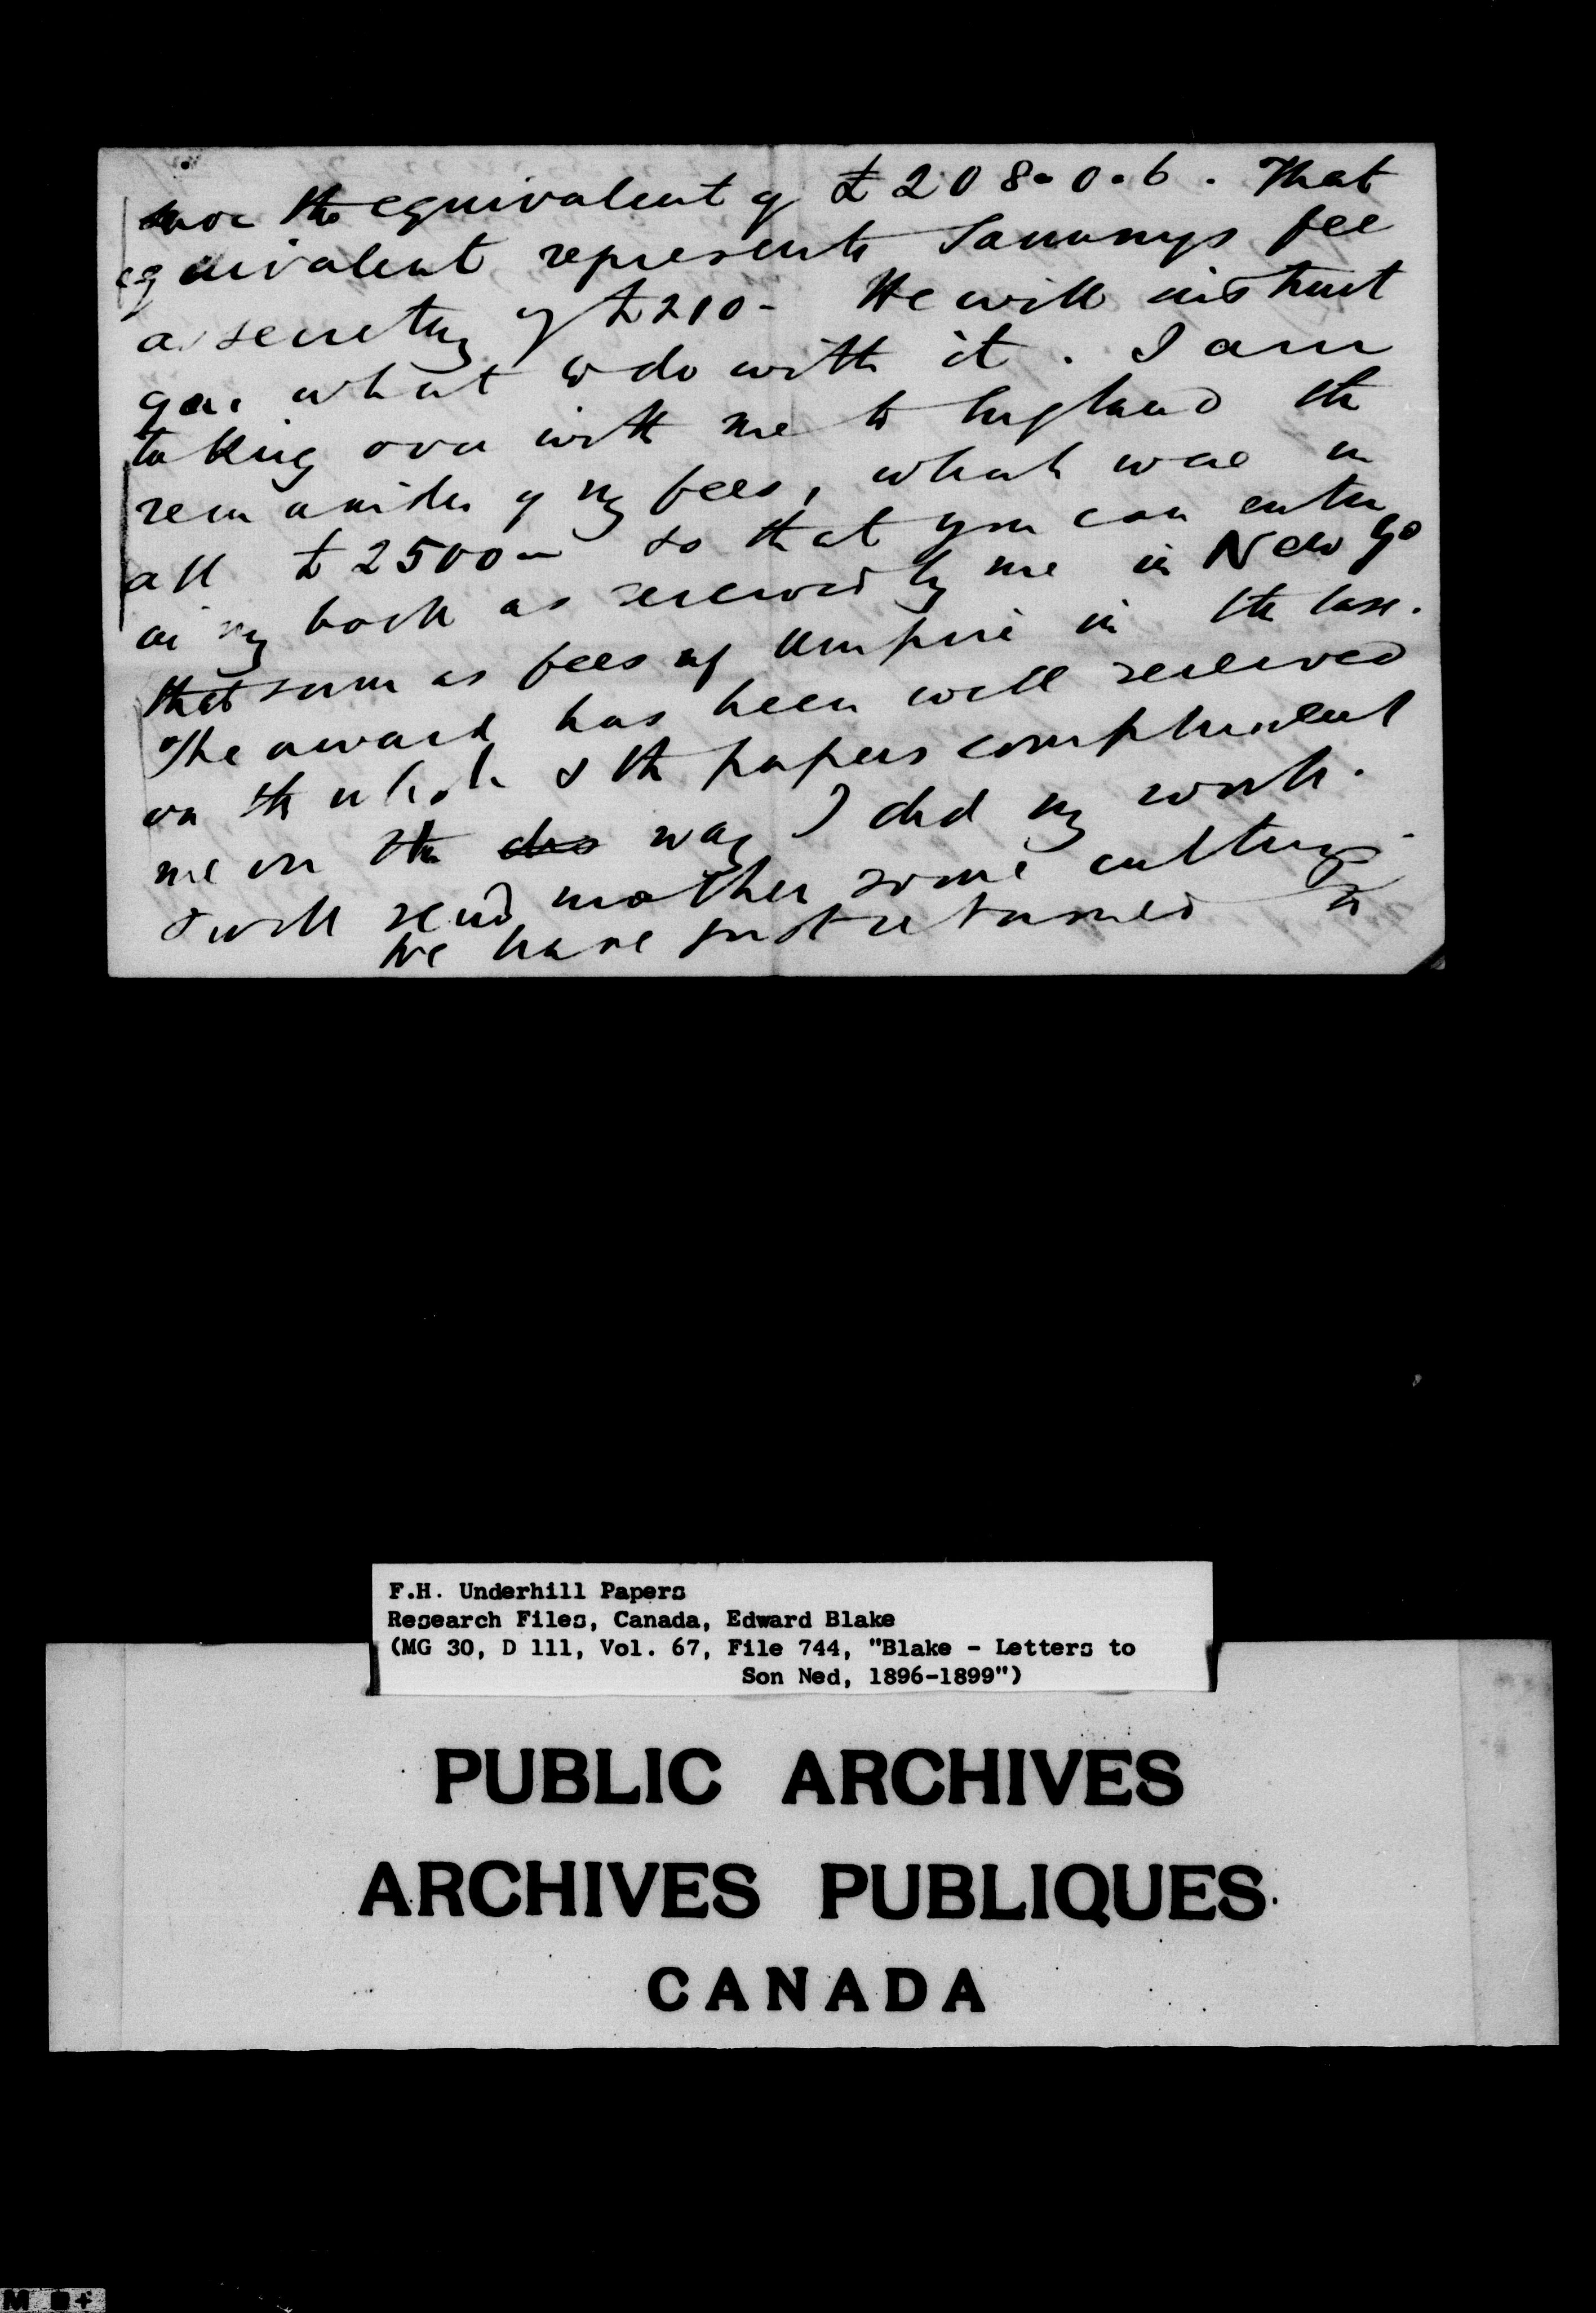 more the equivalent of £208-0-6. That
equivalent represents Sammys fee
as secretary of £210- He will instruct
you what to do with it. I am
taking over with me to England the
remainder of my fees, which were in
all £2500- so that you can enter
in my book as received by me in New Yo
that sum as fees of Umpire in the case.
The award has been well received
on the whole & the papers compliment
me on the way I did my work.
I will send mother some cuttings.
We have just returned
F.H. Underhill Papers
Research Files, Canada, Edward Blake
(MG 30, D 111, Vol. 67, File 744, "Blake - Letters to
Son Ned, 1896-1899")
PUBLIC ARCHIVES
ARCHIVES PUBLIQUES
CANADA